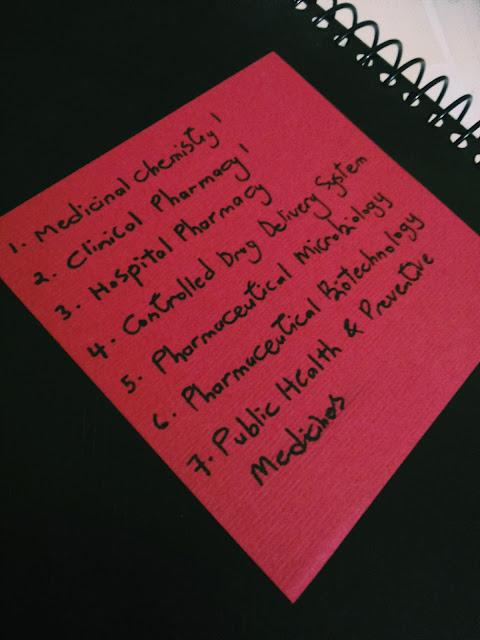 1. Medicinal Chemistry 1
2. Clinical Pharmacy 1
3. Hospital Pharmacy
4. Controlled Drug Delivery System
5. Pharmaceutical Microbiology
6. Pharmaceutical Biotechnology
7. Public Health & Preventive
Medicines